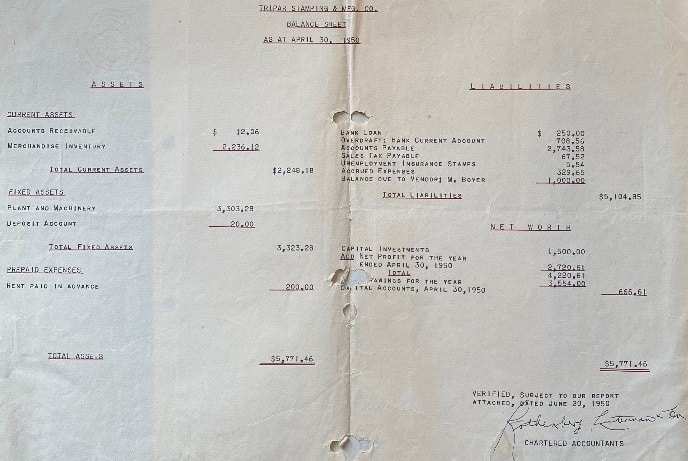 TRIPAR STAMPING & MFG. CO.
BALANCE SHEET
AS AT APRIL 30, 1950
ASSETS
CURRENT ASSETS
ACCOUNTS RECEIVABLE $ 12.06
MERCHANDISE INVENTORY 2,236.12
TOTAL CURRENT ASSETS $2,248.18
FIXED ASSETS
PLANT AND MACHINERY 3,303.28
DEPOSIT ACCOUNT 20.00
TOTAL FIXED ASSETS 3,323.28
PREPAID EXPENSES
RENT PAID IN ADVANCE 200.00
TOTAL ASSETS $5,771.46
LIABILITIES
BANK LOAN $ 250.00
OVERDRAFT: BANK CURRENT ACCOUNT 708.56
ACCOUNTS PAYABLE 2,743.58
SALES TAX PAYABLE 67.52
UNEMPLOYMENT INSURANCE STAMPS 5.54
ACCRUED EXPENSES 329.65
BALANCE DUE TO VENDOR: W. BOYER 1,000.00
TOTAL LIABILITIES $5,104.85
NET WORTH
CAPITAL INVESTMENTS 1,500.00
ADD NET PROFIT FOR THE YEAR
ENDED APRIL 30, 1950 2,720.61
TOTAL 4,220.61
FOR THE YEAR 3,554.00
CAPITAL ACCOUNTS, APRIL 30,1950 666.61
$5,771.46
VERIFIED, SUBJECT TO OUR REPORT
ATTACHED, DATED JUNE 20, 1950
CHARTERED ACCOUNTANTS